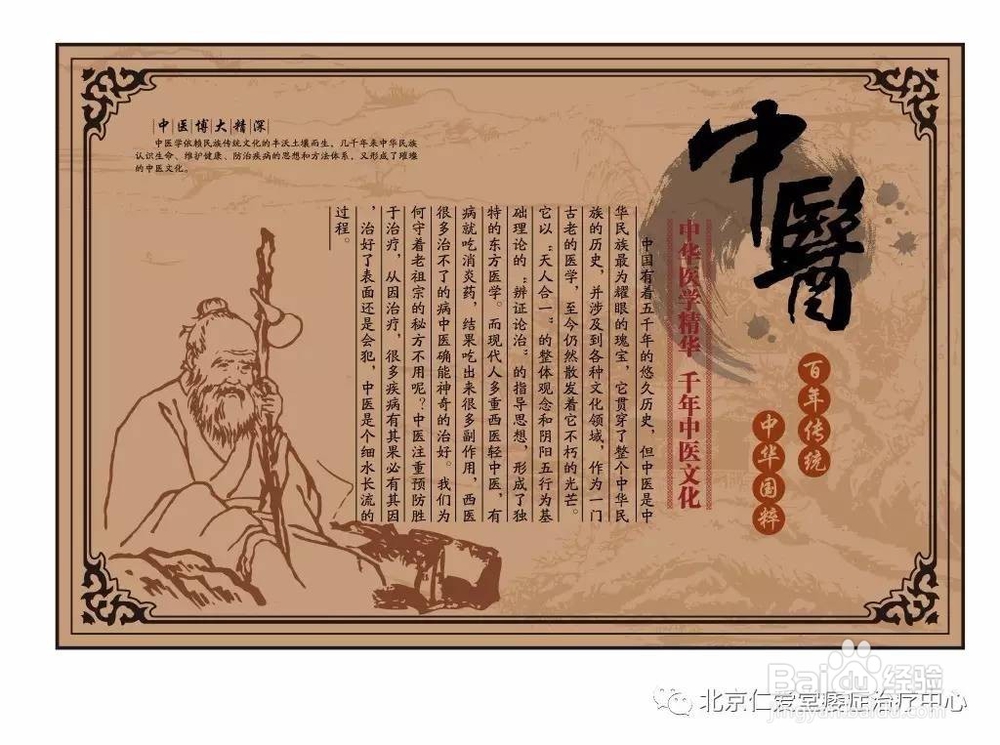 中医博大精深
中医学依赖民族传统文化的丰沃土壤而生，几千年来中华民族
认识生命、维护健康、防治疾病的思想和方法体系，又形成了璀璨
的中医文化。
中醫
百年传统
中华国粹
中华医学精华 千年中医文化
中国有着五千年的悠久历史，但中医是中
华民族最为耀眼的瑰宝，它贯穿了整个中华民
族的历史，并涉及到各种文化领域，作为一门
古老的医学，至今仍然散发着它不朽的光芒。
它以“天人合一”的整体观念和阴阳五行为基
础理论的“辨证论治”的指导思想，形成了独
特的东方医学。而现代人多重西医轻中医，有
病就吃消炎药，结果吃出来很多副作用，西医
很多治不了的病中医确能神奇的治好。我们为
何守着老祖宗的秘方不用呢？中医注重预防胜
于治疗，从因治疗，很多疾病有其果必有其因
，治好了表面还是会犯，中医是个细水长流的
过程。
Baidu经验
jingyan.baidu.com
北京仁爱堂痿症治疗中心